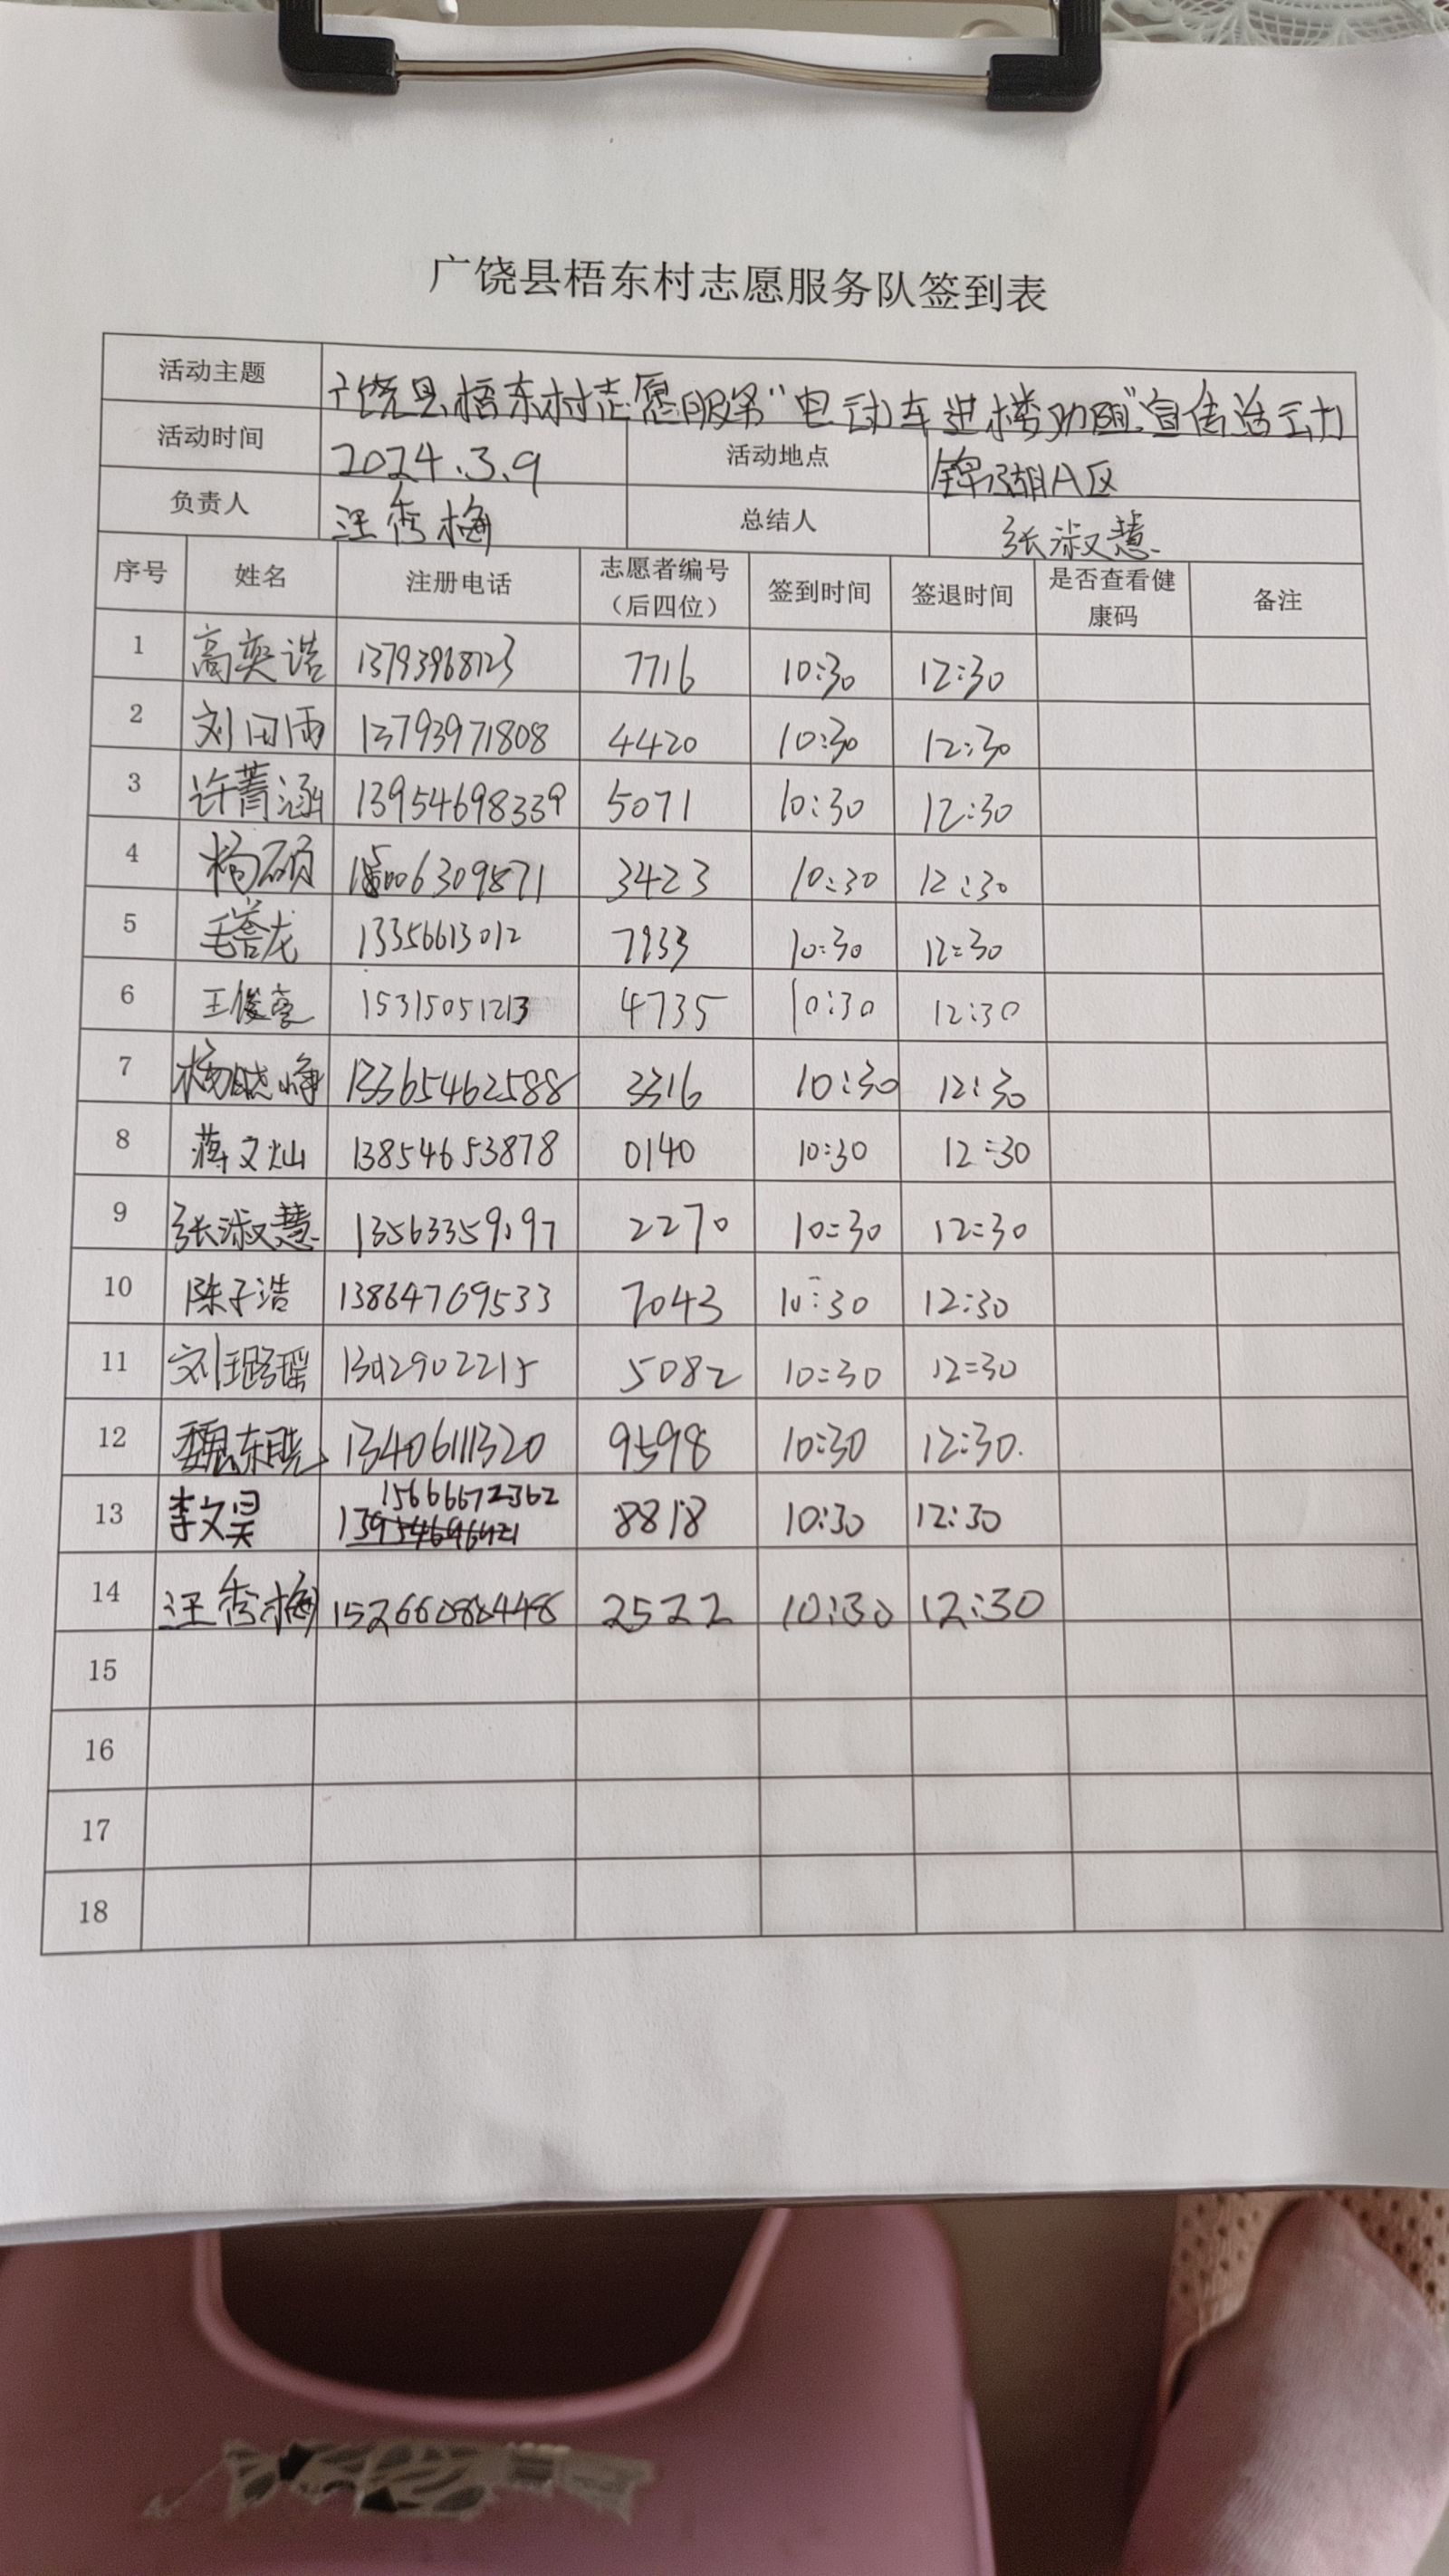 广饶县梧东村志愿服务队签到表
活动主题 广饶县梧东村志愿服务"电动车进楼劝阻"宣传活动
活动时间 2024.3.9 活动地点 锦湖A区
负责人 汪秀梅 总结人 张淑慧
序号 姓名 注册电话 志愿者编号（后四位） 签到时间 签退时间 是否查看健康码 备注
1 高奕诰 13793968123 7716 10:30 12:30
2 刘田雨 13793971808 4420 10:30 12:30
3 许菁涵 13954698339 5071 10:30 12:30
4 杨硕 3423 10:30 12:30
5 毛誉龙 13356613012 7933 10:30 12:30
6 15315051213 4735 10:30 12:30
7 杨晓峥 13365462588 3316 10:30 12:30
8 蒋文灿 13854653878 0140 10:30 12:30
9 张淑慧 13563359197 2270 10:30 12:30
10 陈子浩 13864769533 7043 10:30 12:30
11 刘璐瑶 5082 10:30 12:30
12 魏东晓 13406111320 9598 10:30 12:30.
13 李文昊 15666672362 8818 10:30 12:30
14 汪秀梅 15266080448 2522 10:30 12:30
15
16
17
18